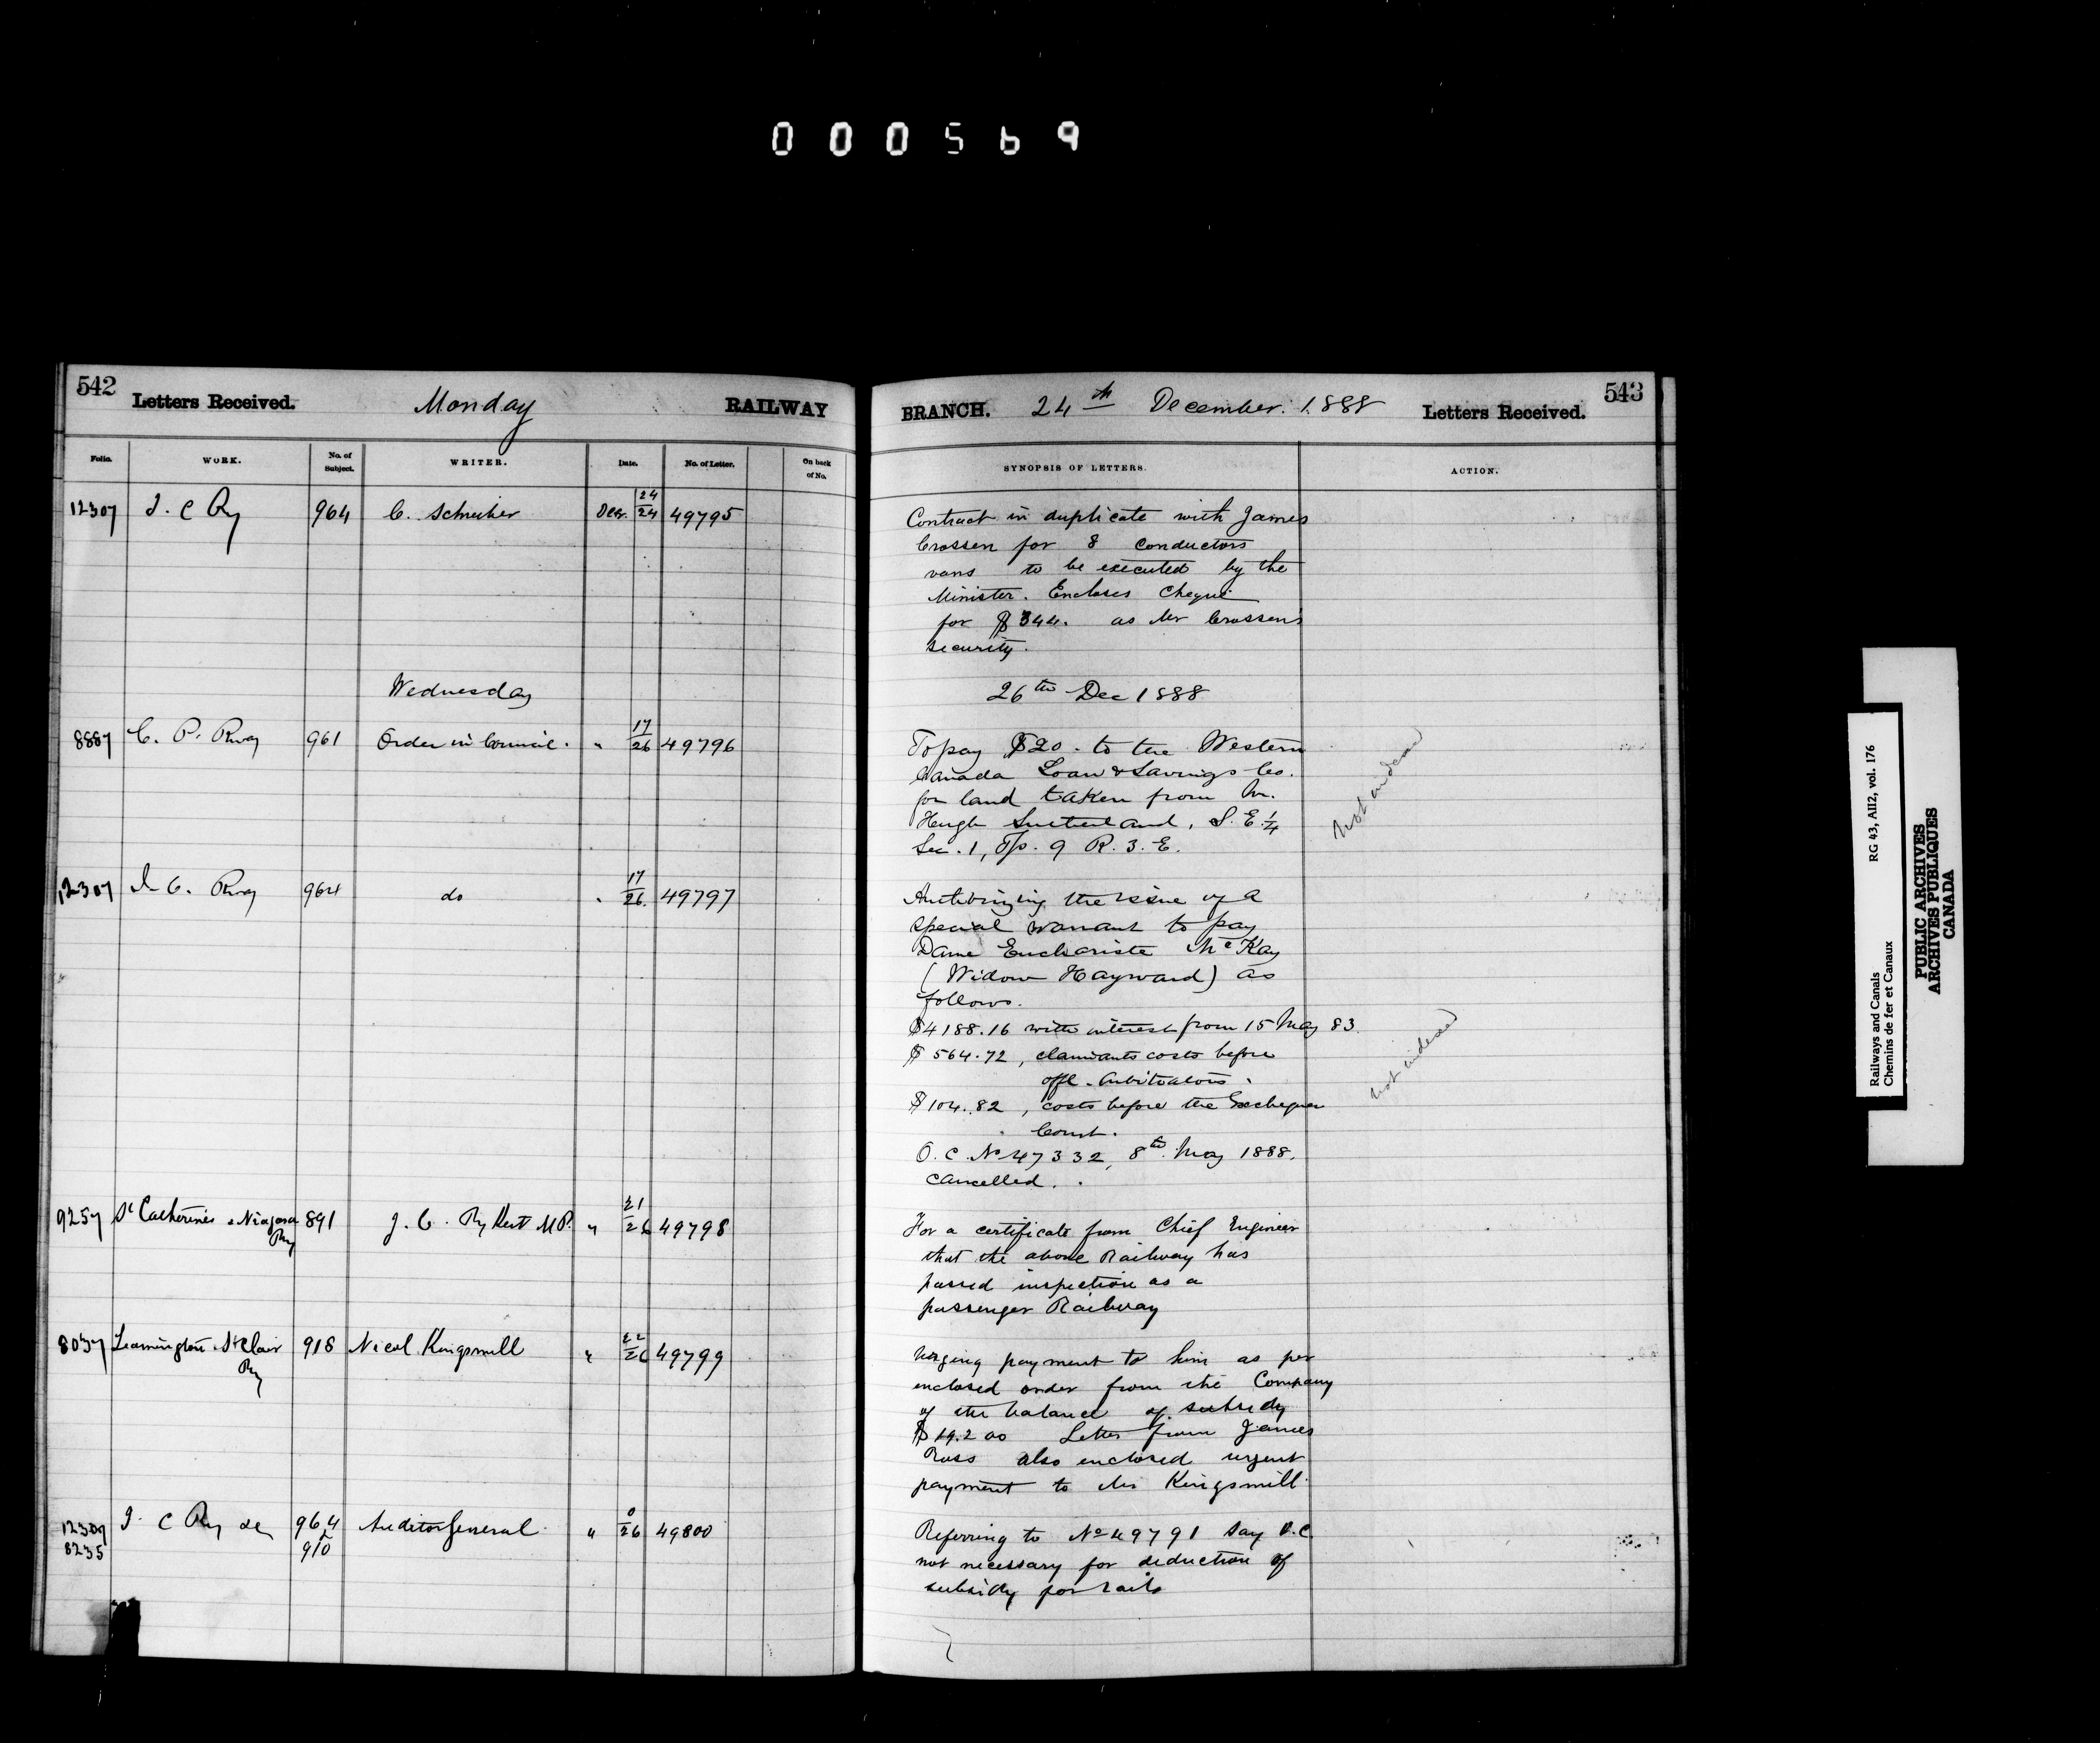 000569
542 Letters Received. Monday RAILWAY
BRANCH. 24th December. 1888 Letters Received. 543
Folio. WORK. No. of Subject. WRITER. Date. No. of Letter. On back of No.
SYNOPSIS OF LETTERS. ACTION.
12307 I. C Ry 964 C. Schreiber Decr. 24/24 49795
Contract in duplicate with James
Crossen for 8 conductors
vans to be executed by the
Minister. Encloses Cheque
for $344. as Mr Crossen's
security.
Wednesday 26th Dec 1888
8887 C. P. Rway 961 Order in Council. " 17/26 49796
To pay $20. to the Western
Canada Loan & Savings Co.
for land taken from Mr.
Hugh Sutherland, S. E. 1/4
Sec. 1, Tp. 9 R. 3. E.
Not indexed
12307 I. C. Rway 964 do " 17/26 49797
Authorizing the issue of a
special warrant to pay
Dame Euchariste McKay
(Widow Hayward) as
follows.
$4188.16 with interest from 15 May 83.
$564.72, claimants costs before
offl. Arbitrators.
$104.82, costs before the Exchequer
Court.
O. C. No 47332, 8th May 1888.
cancelled.
not indexed
9257 St Catherines & Niagara Ry 891 J. C. Rykert M.P. " 21/26 49798
For a certificate from Chief Engineer
that the above Railway has
passed inspection as a
passenger Railway
8037 Leamington & St Clair Ry 918 Nicol Kingsmill " 22/26 49799
Urging payment to him as per
enclosed order from the Company
of the balance of subsidy
Letter from James
Ross also enclosed urgent
payment to Mr Kingsmill
12307 8235 I. C Ry &c 964 & 910 Auditor General " 0/26 49800
Referring to No 49791 Say O.C.
not necessary for deduction of
subsidy for rails
Railways and Canals RG 43, AII2, vol. 176
Chemins de fer et Canaux
PUBLIC ARCHIVES
ARCHIVES PUBLIQUES
CANADA